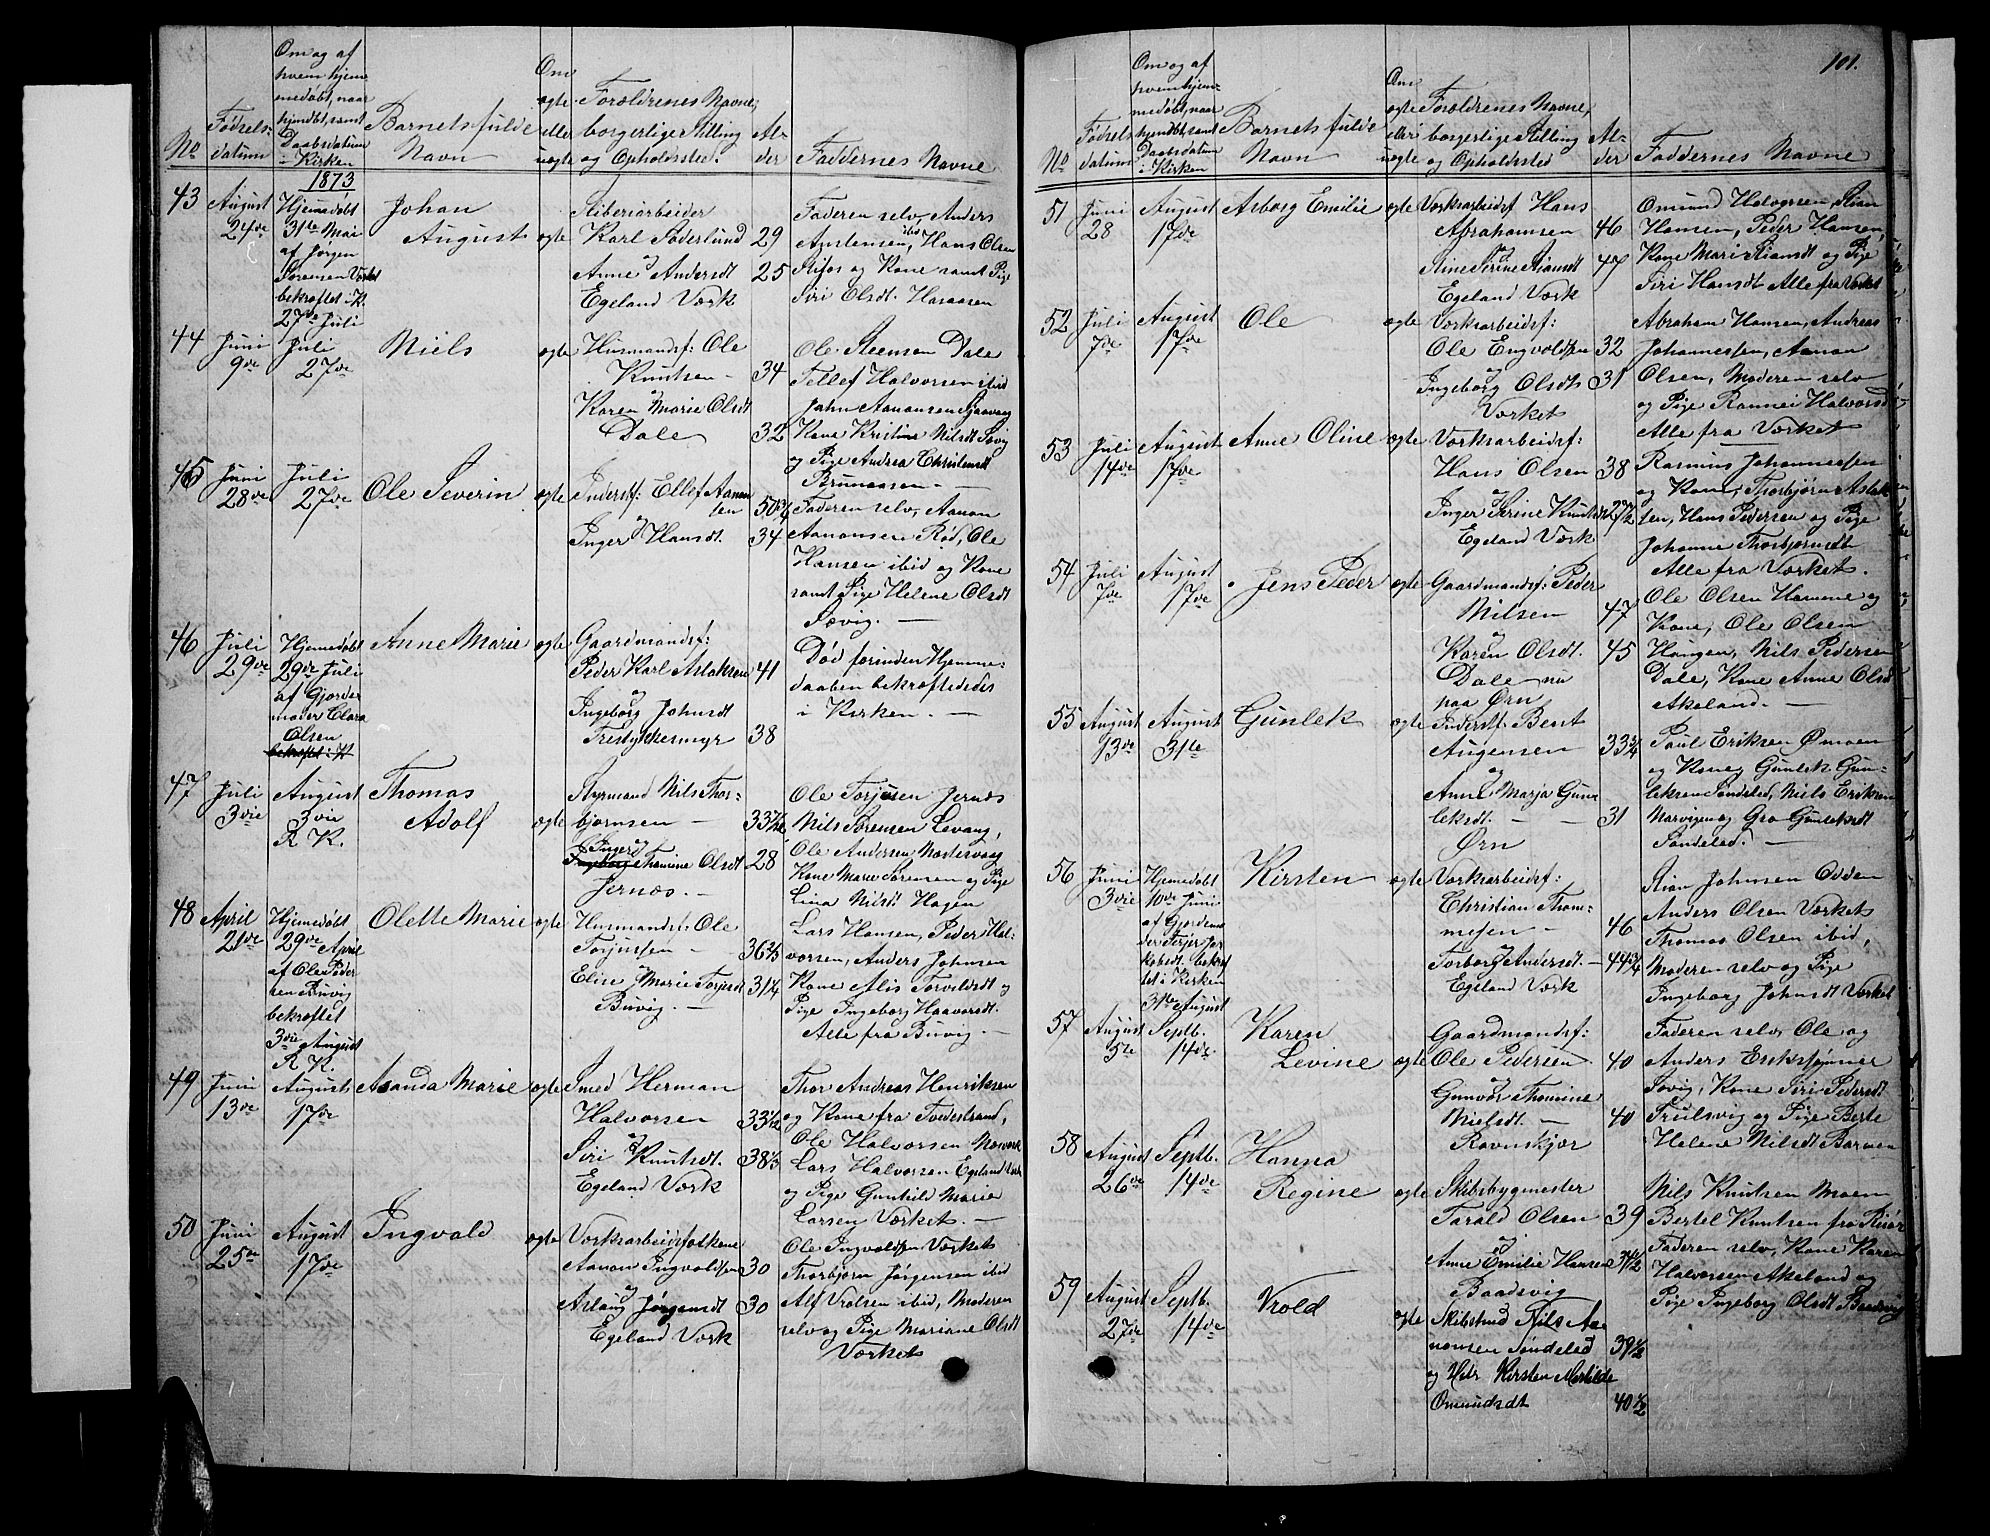 No
Fødsels-
datum
Om og af
hvem hjem-
medøbt, naar
hjemdøbt, samt
Daabsdatum
i Kirken
1873
Barnets fulde
Navn
Om
ægte
eller
uægte
Forældrenes Navne,
borgerlige Stilling
og Opholdssted.
Al-
der
Faddernes Navne
43
August
24de
Hjemmedøbt
31te Mai
af Jørgen
Sørensen Værket
bekræftet i K.
27de Juli
Johan
August
ægte
Karl Søderlund
29
og
Anne Andersdt
25
Egeland Værk
Faderen selv, Anders
Hans Olsen
og Kone samt Pige
Siri Olsdt. Haraasen
44
Juni
9de
Juli
27de
Niels
ægte
Husmandsf: Ole
Knutsen
34
og
Karen Marie Olsdt
Dale
32
Ole Steensen Dale
Tellef Halvorsen ibid
John Aanonsen
Kone Kristine Nilsdt Søvig
og Pige Andrea Christensdt
45
Juni
28de
Juli
27de
Ole Severin
ægte
Inderstf: Ellef Aanon
sen
50 3/4
og
Inger Hansdt.
34
Faderen selv, Aanon
Aanonsen Rød, Ole
Hansen ibid og Kone
samt Pige Helene Olsdt
Søvig.
46
Juli
29de
Hjemmedøbt
29de Juli
af Gjorder
moder Clara
Olsen
bekræftet i K
Anne Marie
ægte
Gaardmandsf:
Peder Karl Aslaksen
41
og
Ingeborg Johnsdt
Trestykkermyr
38
Død forinden Hjemme-
daaben bekræftedes
i Kirken.
47
Juli
3die
August
3die
R. K.
Thomas
Adolf
ægte
Styrmand Nils Thor-
bjørnsen
33 7/12
og
Inger
Ingeborg Tomine Olsdt
28
Jernæs.
Ole Torjusen Jernæs
Nils Sørensen Levang,
Ole Andersen
Kone Marie Sørensen og Pige
Lina Nilsdt Hagen
48
April
21de
Hjemmedøbt
29de April
af Ole Peder
sen Buvig
bekræftet
3die August
R. K.
Olette Marie
ægte
Husmandsf. Ole
Torjussen
36 2/3
og
Elise Marie Torjusdt
31 1/4
Buvig.
Lars Hansen, Peder Hal-
vorsen, Anders Johnsen
Kone Alis Torvildsdt og
Pige Ingeborg Haavorsdt.
Alle fra Buvig.
49
Juni
13de
August
17de
Amanda Marie
ægte
Smed Herman
Halvorsen
33 1/12
og
Siri Knutsdt.
38 1/3
Egeland Værk
Thor Andreas Henriksen
og Kone fra Tvedestrand,
Ole Halvorsen
Lars Halvorsen Egeland Værk
og Pige Gunhild Marie
Larsen Værket.
50
Juni
25de
August
17de
Ingvald
ægte
Værksarbeidsfolkene
Aanon Ingvoldsen
30
og
Aslaug Jørgensdt
30
Egeland Værk
Ole Ingvoldsen Værket
Thorbjørn Jørgensen ibid
Alf Vrolsen ibid, Moderen
selv og Pige Mariane Olsdt
Værket
101.
No
Fødsels
datum
Om og af
hvem hjem-
medøbt, naar
hjemdøbt, samt
Daabsdatum
i Kirken
Barnets fulde
Navn
Om
ægte
eller
uægte
Forældrenes Navne,
borgerlige Stilling
og Opholdssted
Al-
der
Faddernes Navne
51
Juni
28
August
17de
Asborg Emilie
ægte
Værksarbeidsf Hans
Abrahamsen
46
og
Stine Serine Stiansdt
47
Egeland Værk
Omund Halvorsen, Stian
Hansen, Peder Hansen,
Kone Mari Stiansdt og Pige
Siri Hansdt Alle fra Værket
52
Juli
7de
August
17de
Ole
ægte
Værksarbeidsf:
Ole Engvoldsen
32
og
Ingeborg Olsdt
31
Værket
Abraham Hansen, Andreas
Johannessen, Aanon
Olsen, Moderen selv
og Pige Rannei Halvorsdt
Alle fra Værket
53
Juli
14de
August
17de
Anne Oline
ægte
Værksarbeidsf:
Hans Olsen
38
og
Inger Serine Knutsdt
27 1/2
Egeland Værk
Rasmus Johannessen
og Kone, Thorbjørn Aslak
sen, Hans Pedersen og Pige
Johanne Thorbjørnsdt
Alle fra Værket.
54
Juli
7de
August
17de
Jens Peder
ægte
Gaardmandsf: Peder
Nilsen
47
og
Karen Olsdt.
45
Dale nu
paa Ørn
Ole Olsen Hamme og
Kone, Ole Olsen
Haugen, Nils Pedersen
Dale, Kone Anne Olsdt
Akeland.
55
August
13de
August
31te
Gunlek
ægte
Inderstf. Bent
Augensen
33 3/4
og
Anne Marja Gun
leksdt.
31
Ørn
Paul Eriksen Ømoen
og Kone, Gunlek Gun-
leksen Søndeled, Niels Eriksen
Marvigen og Gro Gunleksdt
Søndeled.
56
Juni
3die
Hjemmedøbt
10de Juni
af Gjordemo
der Terjer Ja
kobsdt. bekræf
tet i Kirken
31te August
Kirsten
ægte
Værksarbeidsf:
Christian Thom-
mesen
46
og
Torborg Andersdt.
44 3/4
Egeland Værk
Stian Johnsen Odden
Anders Olsen Værket
Thomas Olsen ibid,
Moderen selv og Pige
Ingeborg Johnsdt Værket
57
August
5te
Septb.
14de
Karen
Levine
ægte
Gaardmandsf:
Ole Pedersen
40
og
Gunvor Thomine
Nielsdt.
40
Ravnskjær
Faderen selv, Ole og
Anders
Søvig, Kone Siri Pedersdt
Trulsvig og Pige Berte
Helene Nilsdt Barmen
58
August
26de
Septb.
14de
Hanna
Regine
ægte
Skibsbygmester
Tarald Olsen
39
og
Anne Emilie Hansen
34 1/2
Baadsvig
Nils Knutsen Moen
Bertel Knutsen fra Risør
Faderen selv, Kone Karen
Halvorsen Akeland og
Pige Ingeborg Olsdt Baadsvig
59
August
27de
Septb.
14de
Vrold
ægte
Nils Aa-
nonsen Søndeled
39 1/2
og Hstr Kirsten Mathilde
Omundsdt
40 1/2